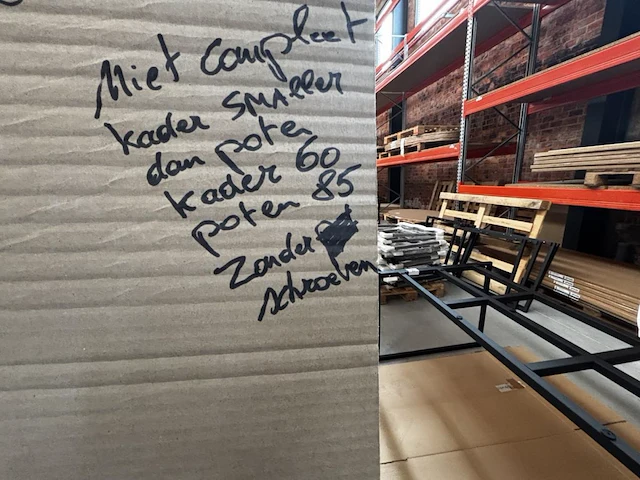 Niet compleet
kader smaller
dan poten
kader 60
poten 85
Zonder
schroeven